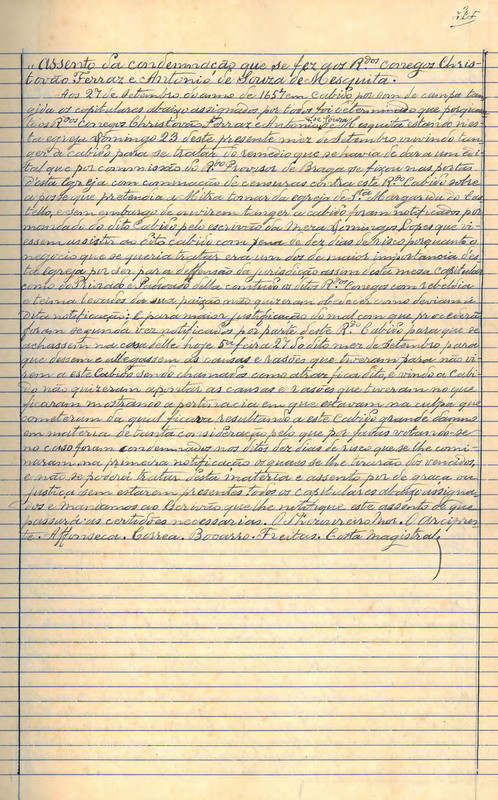 "Assento da condemnação que se fez aos R.dos conegos Chris-
tovão Ferraz e Antonio de Souza de Mesquita.
Aos 27 de Setembro do anno de 1657 em cabido por som de campa tan-
gida os capitulares abaixo assignados por todos foi determinado que porquan-
to os R.dos Conegos Christovão Ferraz e Antonio de Souza Mesquita estando nes-
ta egreja Domingo 23 deste presente mez de Setembro ouvindo tan-
ger a cabido para se tratar do remedio que se havia de dar a um edi-
tal que por commissão do R.do Provisor de Braga se fixou nas portas
d'esta egreja com comminação de censuras contra este R.do Cabido sobre
a posse que pretendia a Mitra tomar da egreja de S.ta Margarida do Cas-
tello, e sem embargo de ouvirem tanger a cabido foram notificados por
mandado do dito Cabido pelo escrivão da Meza Domingos Lopes que vi-
essem assistir ao dito cabido com pena de dez dias de risco porquanto o
negocio que se queria tratar era um dos de maior importancia des-
ta Egreja por ser para deffensão da jurisdicção assim desta meza capitular
como do Priorado e Padroado della comtudo os ditos R.dos Conegos com rebeldia
e teima levados da sua paixão não quizeram obedecer como deviam á
dita notificação; E para maior justificação do mal com que procederão
foram segunda vez notificados por parte deste R.do Cabido para que se
achassem na casa delle hoje 5.a feira 27 do dito mez de Setembro, para
que dissem e allegassem as causas e rasões que tiveram para não vi-
rem a este Cabido sendo chamados como atraz fica dito, e vindo a Cabi-
do não quizeram apontar as causas e rasões que tiveram no que
ficaram mostrando a pertinacia em que estavam na culpa que
cometeram da qual ficava resultando a este Cabido grande damno
em materia de tanta consideração pelo que por favas votando-se
no caso foram condemnados nos ditos dez dias de risco que se lhe comi-
naram na primeira notificação os quaes se lhe tirarão dos vencidos,
e não se poderá tratar desta materia e assento por de graça ou
justiça sem estarem presentes todos os capitulares abaixo assigna-
dos e mandamos ao Escrivão que lhe notifique este assento de que
passará as certidões necessarias. O Thesoureiro Mor. O Arcipres-
te. Affonseca. Correa. Bocarro. Freitas. Costa Magistral.